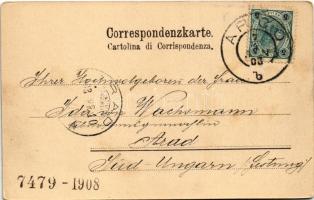 Correspondenzkarte.
Cartolina di Corrispondenza.
Ihrer Hochwolgeboren der Frau
Ida von Wachsmann
Arad
Süd-Ungarn (Festung)
7479-1908